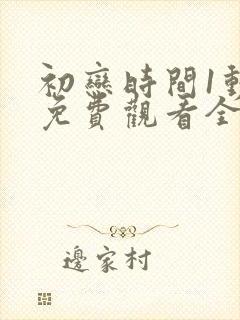 初戀時間1動
免費觀看全
邊家村